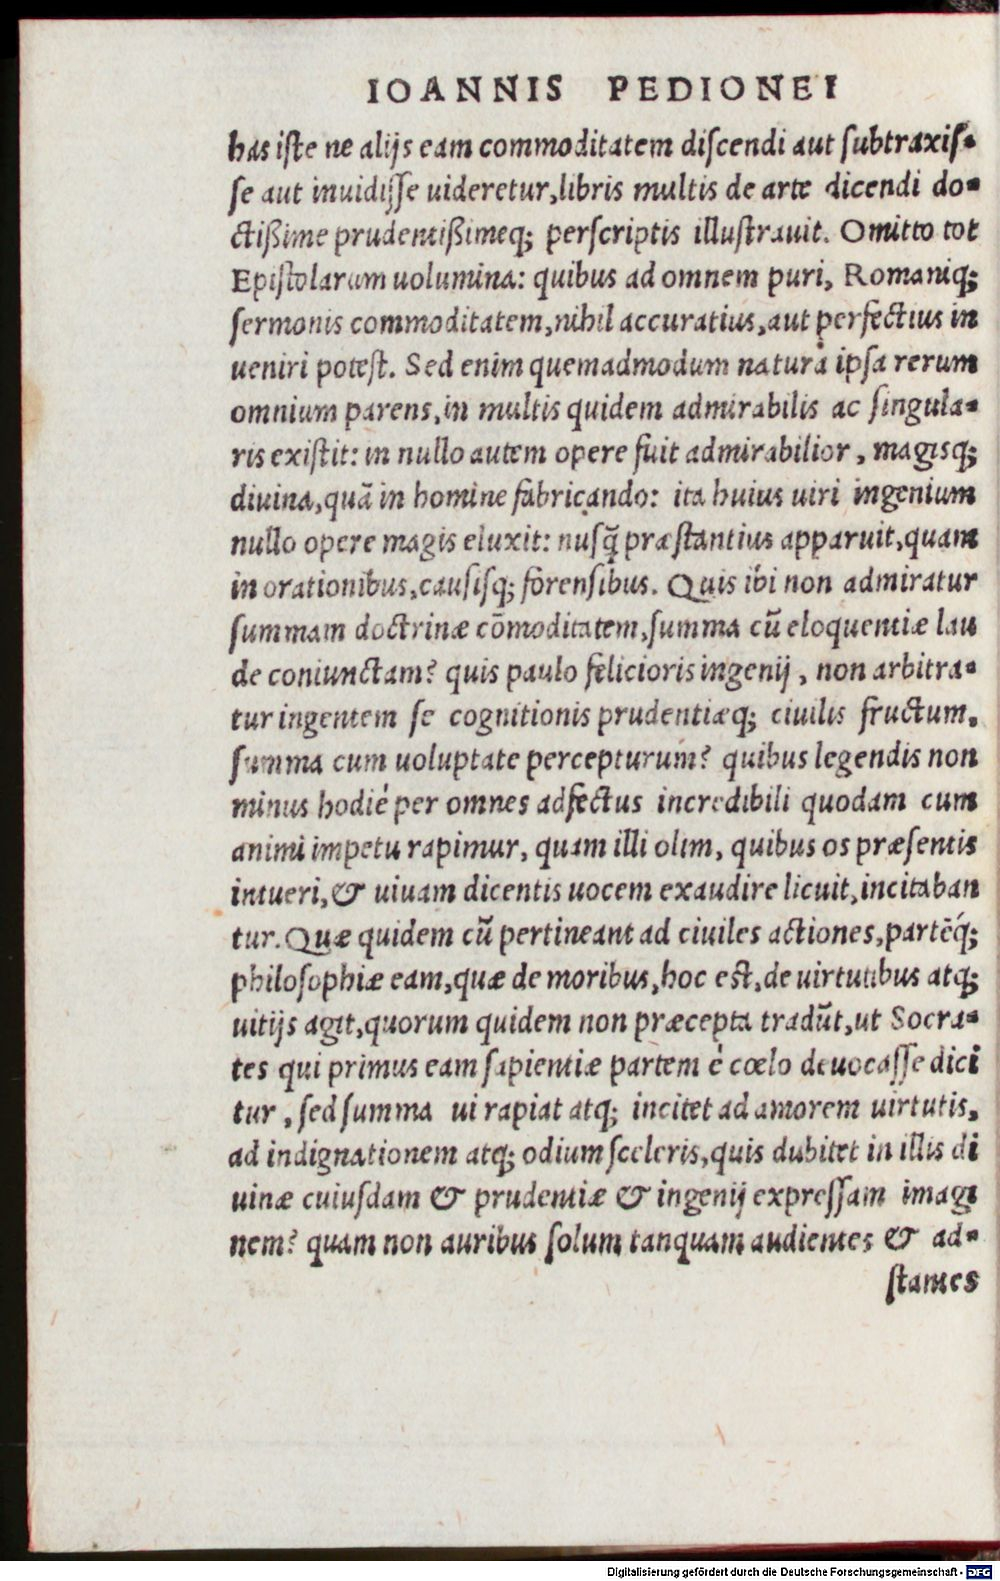 IOANNIS PEDIONEI
has iſte ne alijs eam commoditatem diſcendi aut ſubtraxiſ-
ſe aut inuidiſſe uideretur, libris multis de arte dicendi do-
ctißime prudentißimeq; perſcriptis illuſtrauit. Omitto tot
Epiſtolarum uolumina: quibus ad omnem puri, Romaniq;
ſermonis commoditatem, nihil accuratius, aut perfectius in
ueniri poteſt. Sed enim quemadmodum natura ipſa rerum
omnium parens, in multis quidem admirabilis ac ſingula-
ris exiſtit: in nullo autem opere fuit admirabilior, magisq;
diuina, quā in homine fabricando: ita huius uiri ingenium
nullo opere magis eluxit: nuſq̃ præſtantius apparuit, quam
in orationibus, cauſiſq; forenſibus. Quis ibi non admiratur
ſummam doctrinæ cōmoditatem, ſumma cū eloquentiæ lau
de coniunctam? quis paulo felicioris ingenij, non arbitra-
tur ingentem ſe cognitionis prudentiæq; ciuilis fructum,
ſumma cum uoluptate percepturum? quibus legendis non
minus hodié per omnes adfectus incredibili quodam cum
animi impetu rapimur, quam illi olim, quibus os præſentis
intueri, & uiuam dicentis uocem exaudire licuit, incitaban
tur. Quæ quidem cū pertineant ad ciuiles actiones, partēq́;
philoſophiæ eam, quæ de moribus, hoc eſt, de uirtutibus atq;
uitijs agit, quorum quidem non præcepta tradūt, ut Socra-
tes qui primus eam ſapientiæ partem è cœlo deuocaſſe dici
tur, ſed ſumma ui rapiat atq; incitet ad amorem uirtutis,
ad indignationem atq; odium ſceleris, quis dubitet in illis di
uinæ cuiuſdam & prudentiæ & ingenij expreſſam imagi
nem? quam non auribus ſolum tanquam audientes & ad-
ſtantes
Digitalisierung gefördert durch die Deutsche Forschungsgemeinschaft - DFG